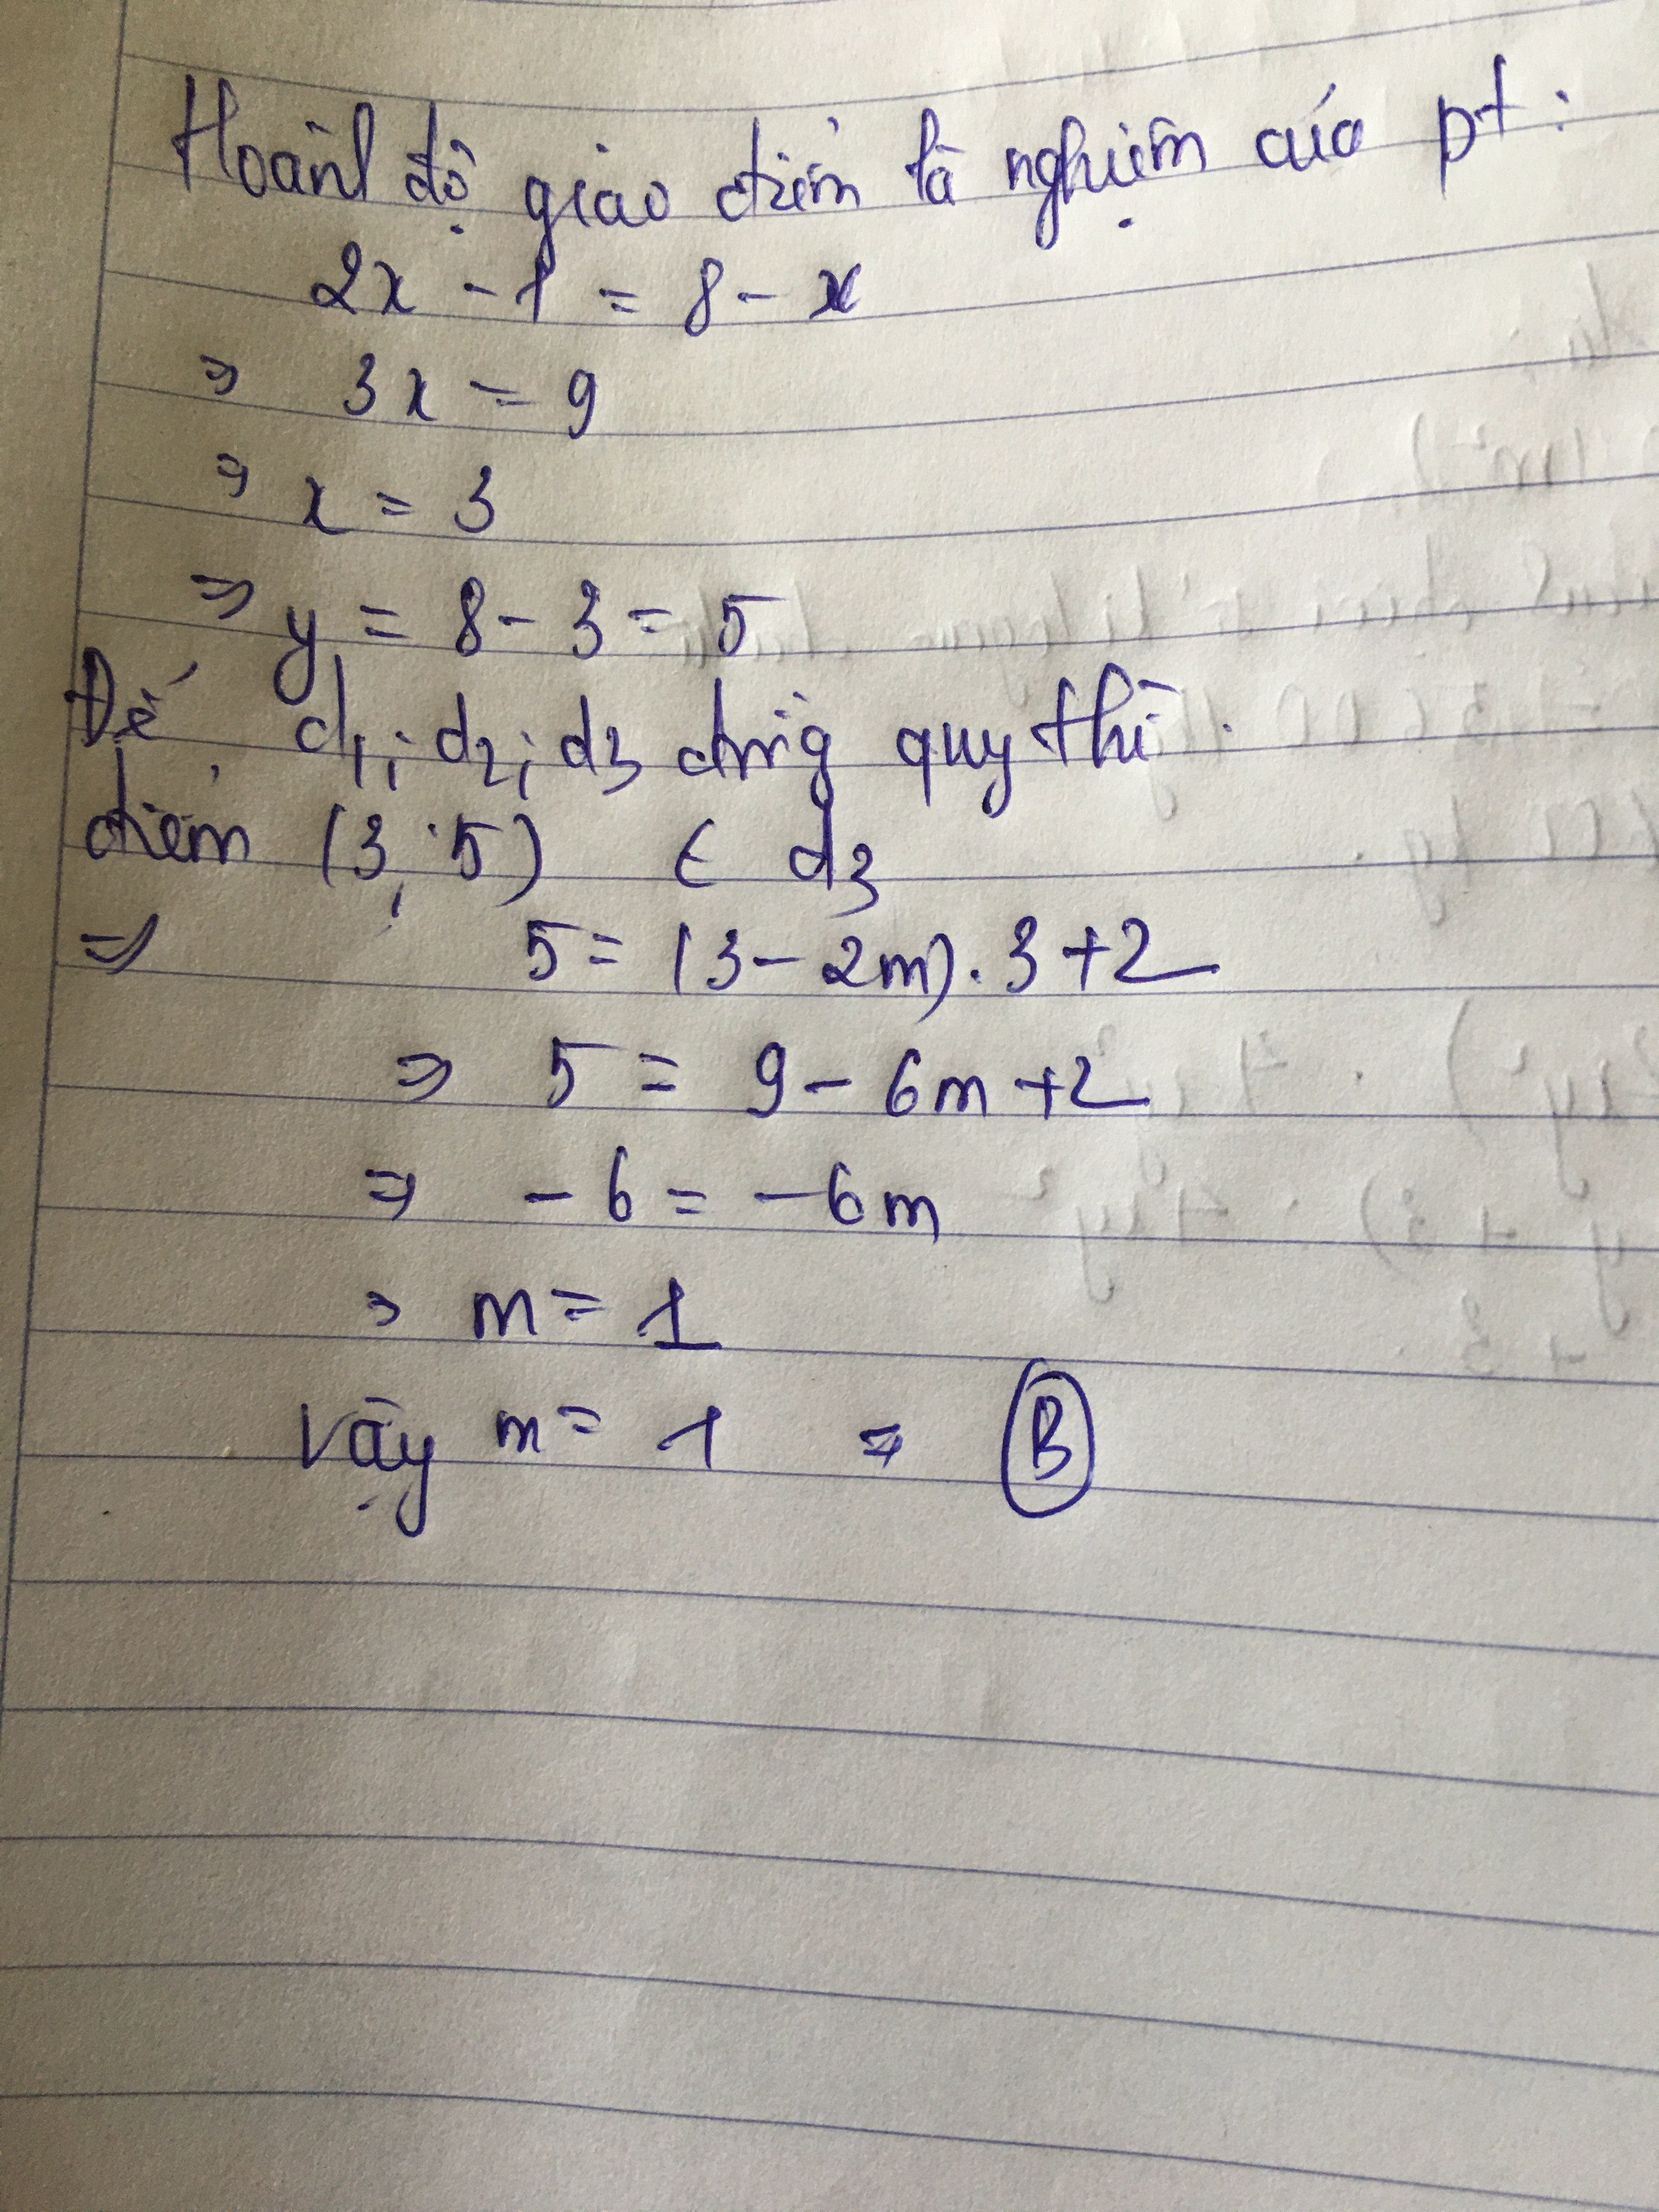 Hoành độ giao điểm là nghiệm của pt:
2x - 1 = 8 - x
=> 3x = 9
=> x = 3
=> y = 8 - 3 = 5
Để d1; d2; d3 đồng quy thì
điểm (3; 5) ∈ d3
=> 5 = (3 - 2m).3 + 2
=> 5 = 9 - 6m + 2
=> -6 = -6m
=> m = 1
Vậy m = 1 => B